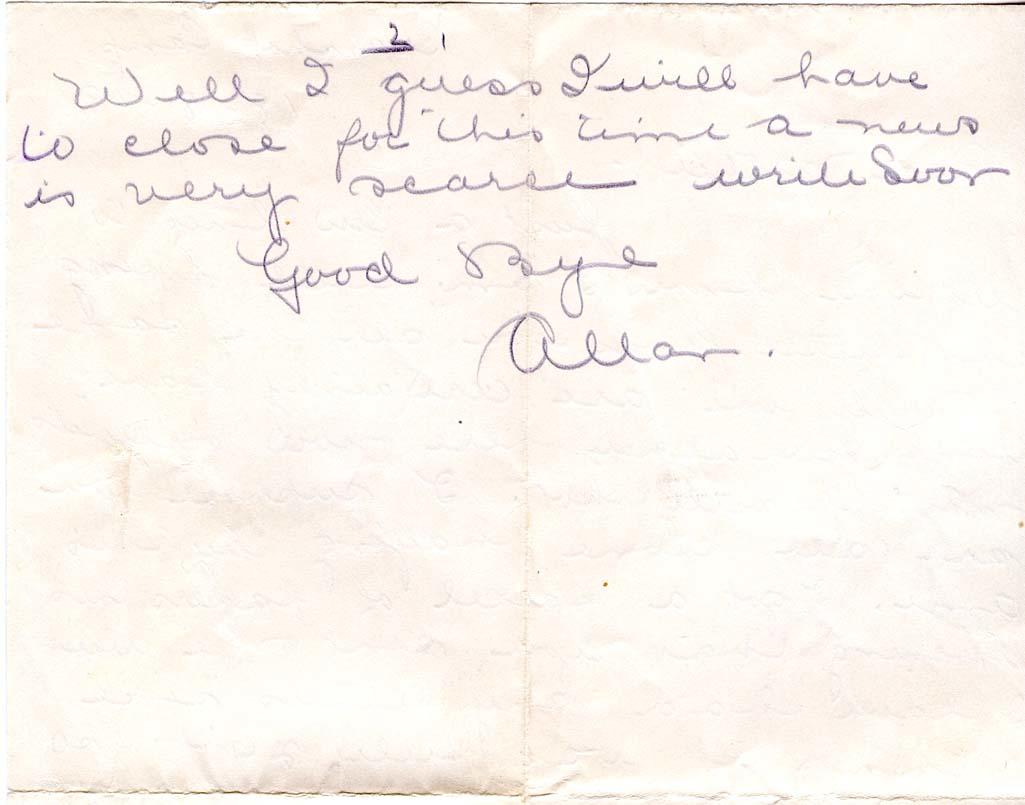 2
Well I guess I will have
to close for this time a news
is very scarce write Soon
Good Bye
Allan.